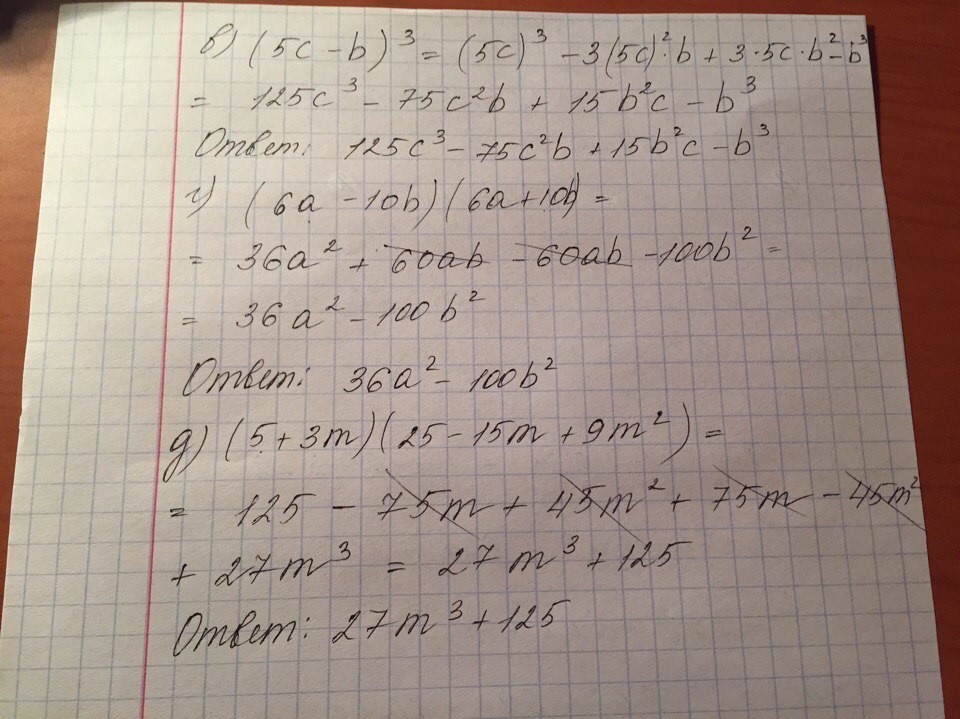 в) (5c - b)³ = (5c)³ - 3(5c)²·b + 3·5c·b² - b³
= 125c³ - 75c²b + 15b²c - b³
Ответ: 125c³ - 75c²b + 15b²c - b³
г) (6a - 10b)(6a + 10b) =
= 36a² + 60ab - 60ab - 100b² =
= 36a² - 100b²
Ответ: 36a² - 100b²
д) (5 + 3m)(25 - 15m + 9m²) =
= 125 - 75m + 45m² + 75m - 45m²
+ 27m³ = 27m³ + 125
Ответ: 27m³ + 125